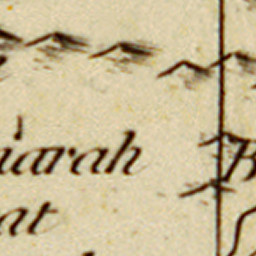 iarah
at
B